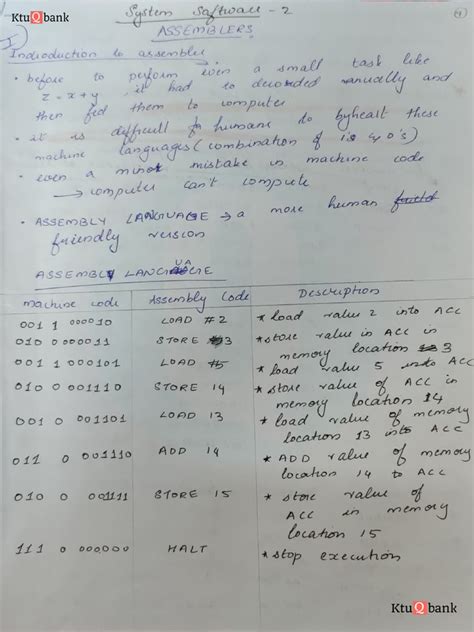 KtuQbank
System Software - 2
ASSEMBLERS
I
Indroduction to assembler
• before to perform even a small task like
z = x + y, it had to decoded manually and
then fed them to computer
• it is difficult for humans to byheart these
machine languages (combination of 1's & 0's)
• even a minor mistake in machine code
→ computer can't compute
• ASSEMBLY LANGUAGE → a more human
friendly version
ASSEMBLY LANGUAGE
machine code Assembly Code Description
001 1 000010 LOAD #2 * load value 2 into ACC
010 0 000011 STORE 3 * store value in ACC in
memory location 3
001 1 000101 LOAD #5 * load value 5 into ACC
010 0 001110 STORE 14 * store value of ACC in
memory location 14
001 0 001101 LOAD 13 * load value of memory
location 13 into ACC
011 0 001110 ADD 14 * ADD value of memory
location 14 to ACC
010 0 001111 STORE 15 * store value of
ACC in memory
location 15
111 0 000000 HALT * stop execution
KtuQbank